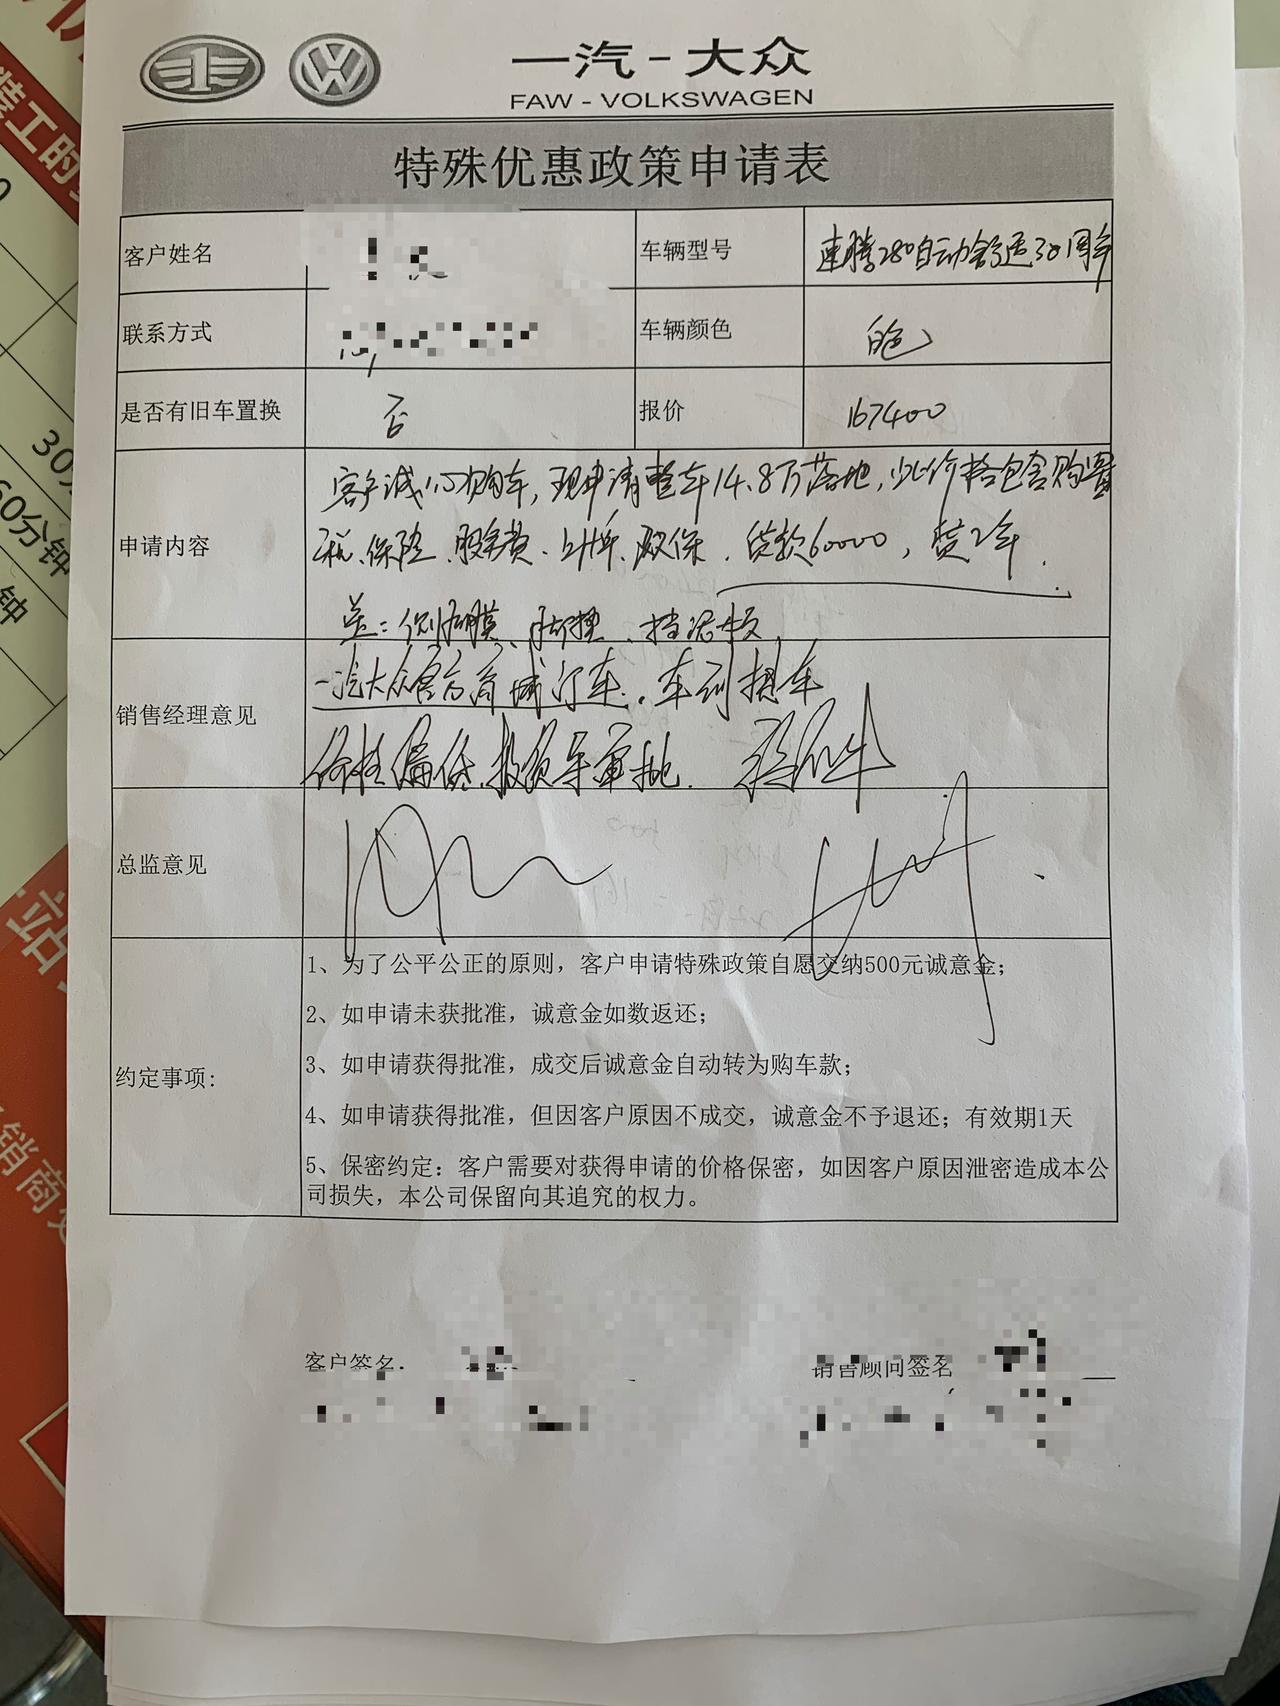 一汽-大众
FAW - VOLKSWAGEN
特殊优惠政策申请表
客户姓名
车辆型号 速腾280自动舒适30周年
联系方式
车辆颜色 白色
是否有旧车置换 否
报价 167400
申请内容
客户诚心购车,现申请整车14.8万落地,此价格包含购置
税、保险、服务费、上牌、双保、贷款60000,贷2年.
送:侧后膜、脚垫、挡泥板
销售经理意见
一汽大众官方商城订车、车到提车
价格偏低,报领导审批.
总监意见
约定事项:
1、为了公平公正的原则,客户申请特殊政策自愿交纳500元诚意金;
2、如申请未获批准,诚意金如数返还;
3、如申请获得批准,成交后诚意金自动转为购车款;
4、如申请获得批准,但因客户原因不成交,诚意金不予退还;有效期1天
5、保密约定:客户需要对获得申请的价格保密,如因客户原因泄密造成本公
司损失,本公司保留向其追究的权力。
客户签名:
销售顾问签名
装工时
30
60分钟
钟
站
销商